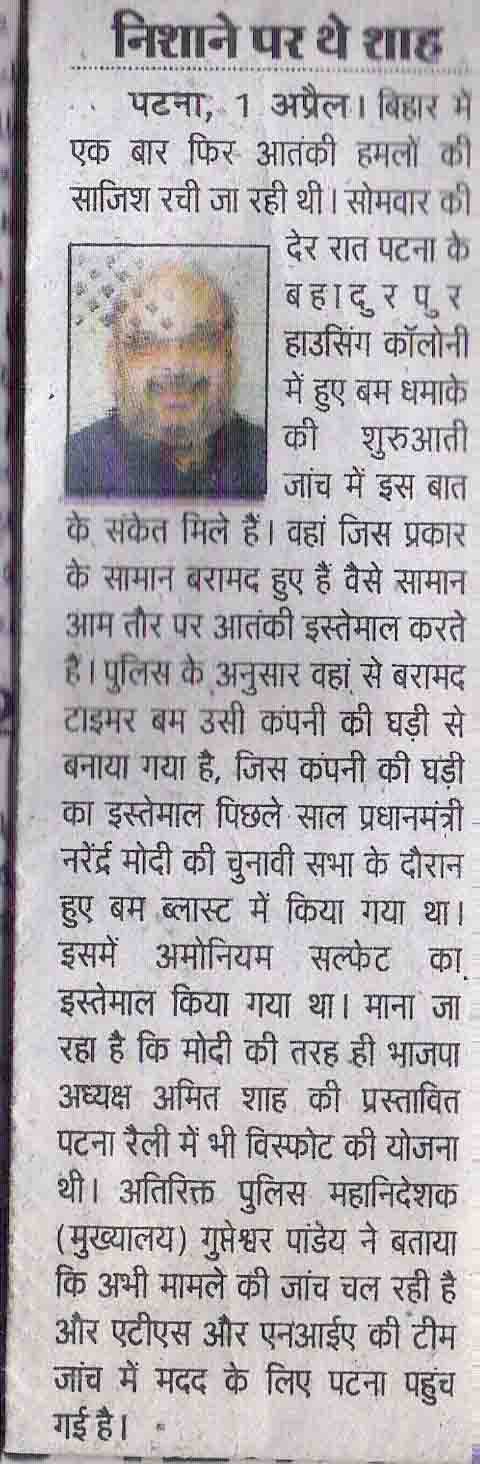 निशाने पर थे शाह
पटना, 1 अप्रैल। बिहार में
एक बार फिर आतंकी हमलों की
साजिश रची जा रही थी। सोमवार की
देर रात पटना के
बहादुरपुर
हाउसिंग कॉलोनी
में हुए बम धमाके
की शुरुआती
जांच में इस बात
के संकेत मिले हैं। वहां जिस प्रकार
के सामान बरामद हुए हैं वैसे सामान
आम तौर पर आतंकी इस्तेमाल करते
हैं। पुलिस के अनुसार वहां से बरामद
टाइमर बम उसी कंपनी की घड़ी से
बनाया गया है, जिस कंपनी की घड़ी
का इस्तेमाल पिछले साल प्रधानमंत्री
नरेंर्द्र मोदी की चुनावी सभा के दौरान
हुए बम ब्लास्ट में किया गया था।
इसमें अमोनियम सल्फेट का
इस्तेमाल किया गया था। माना जा
रहा है कि मोदी की तरह ही भाजपा
अध्यक्ष अमित शाह की प्रस्तावित
पटना रैली में भी विस्फोट की योजना
थी। अतिरिक्त पुलिस महानिदेशक
(मुख्यालय) गुप्तेश्वर पांडेय ने बताया
कि अभी मामले की जांच चल रही है
और एटीएस और एनआईए की टीम
जांच में मदद के लिए पटना पहुंच
गई है।